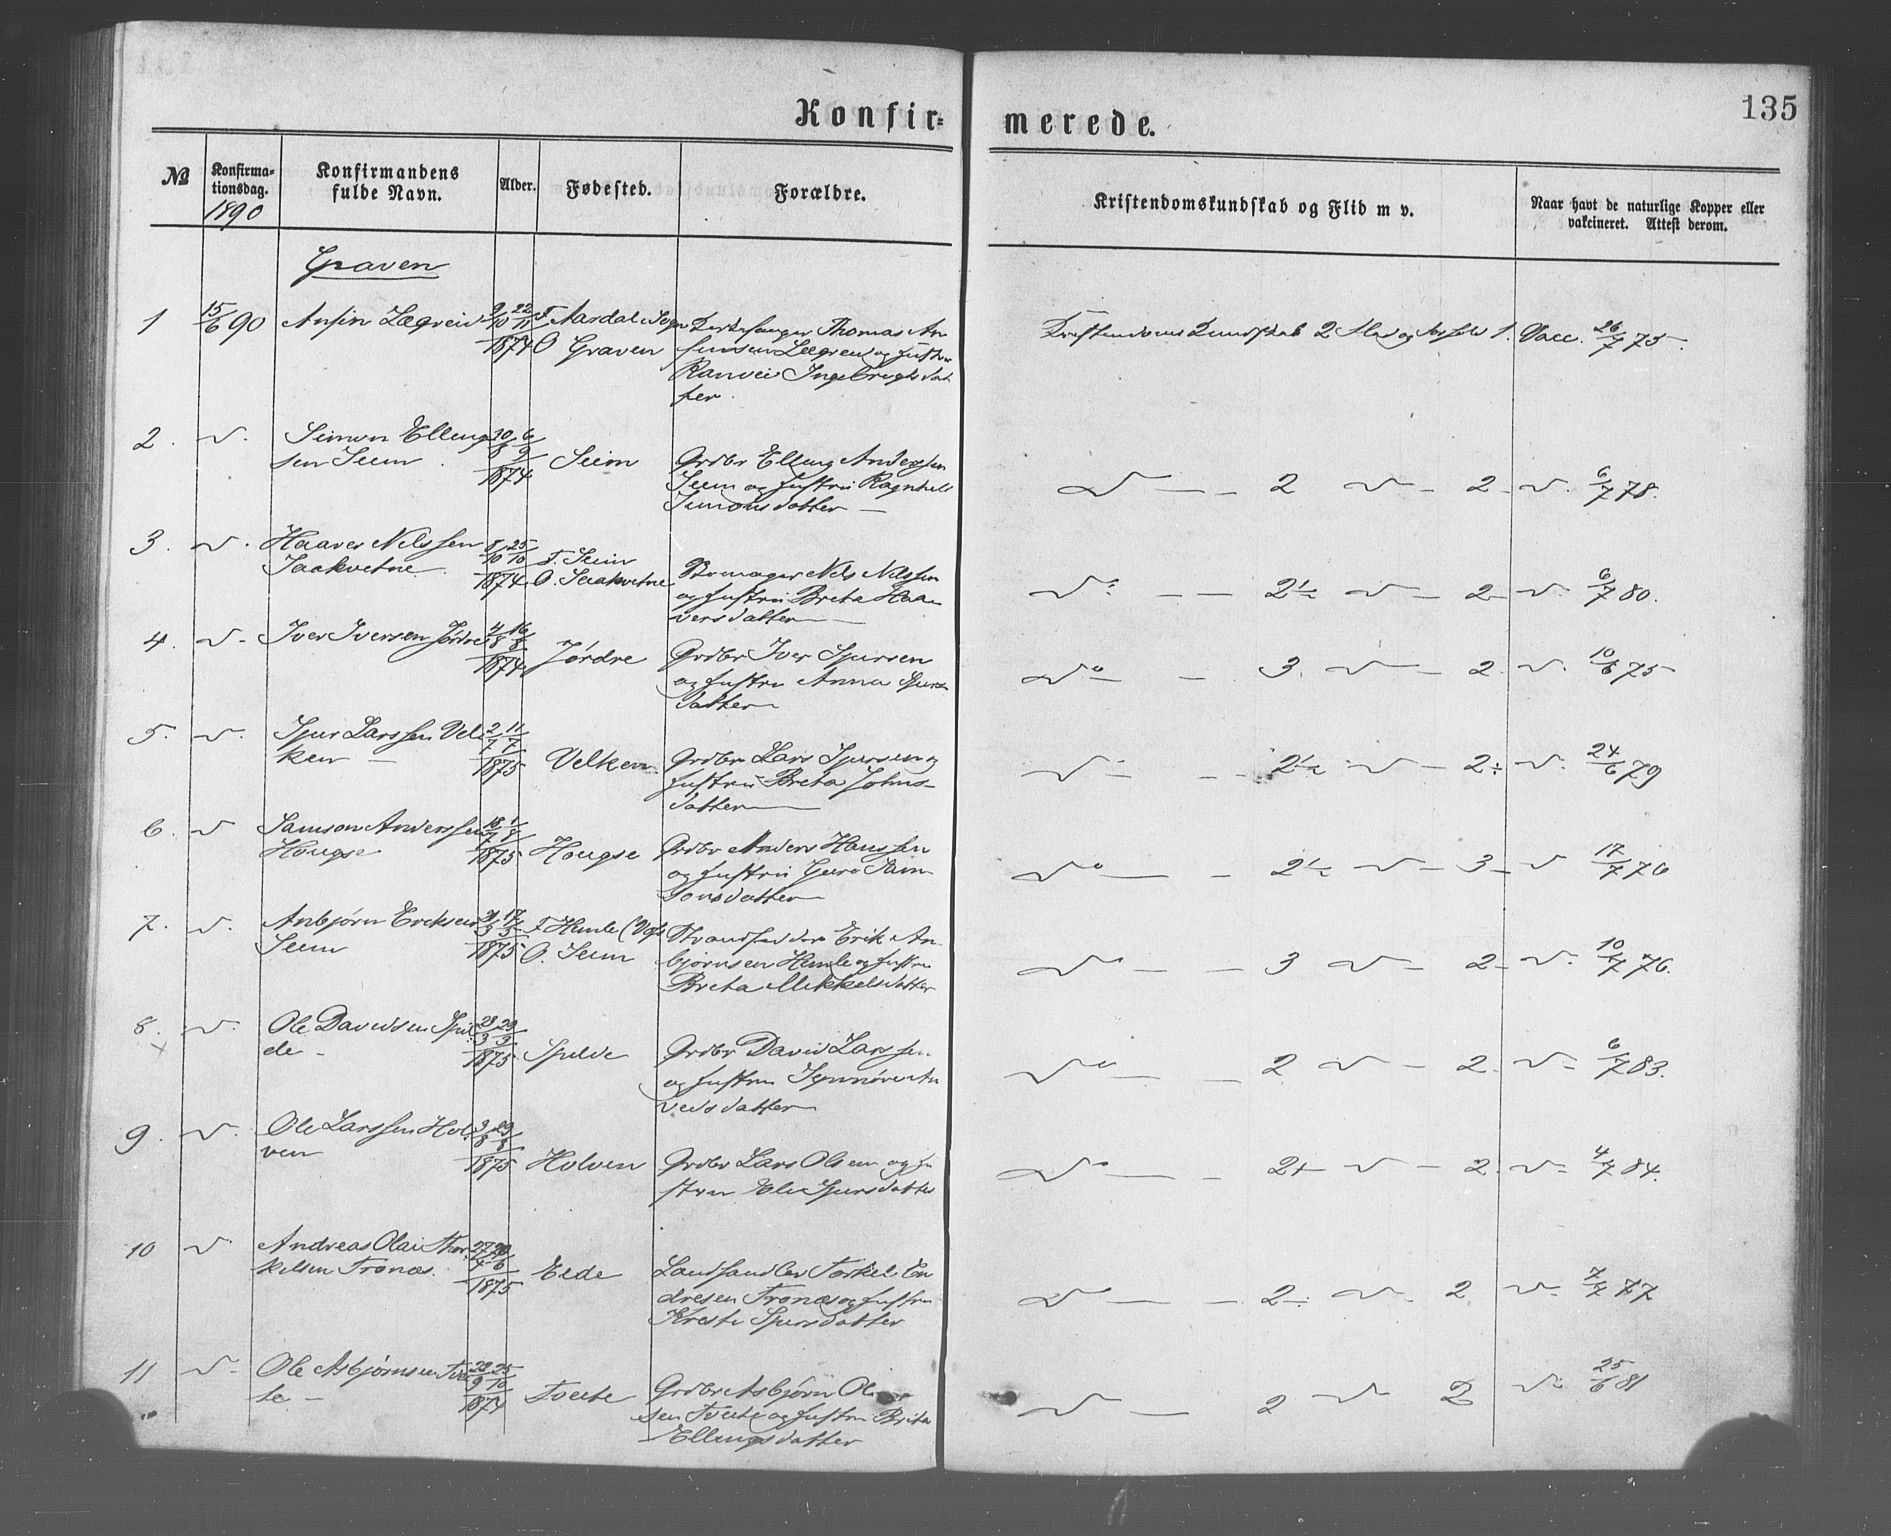 Konfir=
merede.
135
№
Konfirma-
tionsdag.
1890
Konfirmandens
fulde Navn.
Alder.
Fødested.
Forældre.
Kristendomskundskab og Flid m v.
Naar havt de naturlige Kopper eller
vakcineret. Attest derom.
Graven
1 15/6 90 Ansin Lægreid 9/10 22/11 F. Aardal Sogn Kirkesanger Thomas An
1874 O Graven sinsen Lægreid og Hustru
Ranvei Ingebrigtsdat
ter.
Kristendomskundskab 2 Flid og Forhold 1. Vacc. 26/7 75.
2. v. Simon Elling 30/8 6/9
sen Seim 1874 Seim Grdbr Elling Anderssen
Seim og Hustru Ragnhild
Simonsdatter —
v — - 2 v - 2 - v. 6/7 78.
3. v. Haaver Nilssen 8/10 25/10 F. Seim
Saakvitne 1874 O. Saakvitne Skomager Nils Nilssen
og Hustru Brita Haa-
versdatter —
v - - 2½ v - 2 - v. 6/7 80.
4. v. Iver Iversen Jørdre 4/8 16/8
1874 Jørdre Grdbr Iver Sjursen
og Hustru Anna Sjurs
datter
v - - 3. v - 2. v. 10/6 75
5. v. Sjur Larssen Vel 2/7 11/7
ken — 1875 Velken Grdbr Lars Sjursen og
Hustru Brita Johns-
datter —
v - - 2½ v - 2÷ v. 24/6 79
6. v Samson Anderssen 18/7 1/8
Hougse 1875 Hougse Grdbr Anders Hanssen
og Hustru Guro Sam-
sonsdatter
v — - 2½ v - 3 - v 17/7 76
7. v. Anbjørn Eriksen 3 17/3 F Himle (Voss Strandsidder Erik An-
Seim 1875 O. Seim bjørnsen Himle og Hustru
Brita Mikkelsdatter
v - - 3 v - 2 - v. 10/7 76.
8. v. Ole Davidsen Spil 28/3 29/3
de - 1875 Spilde Grdbr David Larssen
og Hustru Synnøve Ar
vedsdatter
v — - 2 v - 2. v - 6/7 83.
9. v. Ole Larssen Hol 3/8 29/8
ven 1875 Holven Grdbr Lars Olsen og Hu
stru Eli Sjursdatter
v — - 2+ v - 2. v - 4/7 84.
10 v. Andreas Olai Thor 27/4 20/6
kelsen Tronæs. 1875 Eide Landhandler Torkel En
dresen Tronæs og Hustru
Kristi Sjursdatter
v — - 2÷ v - 2 v - 7/7 77
11 v. Ole Asbjørnsen Tvei 22/9 25/10
te - 1874 Tveite Grdbr Asbjørn Ol
sen Tveite og Hustru Brita
Ellingsdatter
v — 2 v 2 v 25/6 81